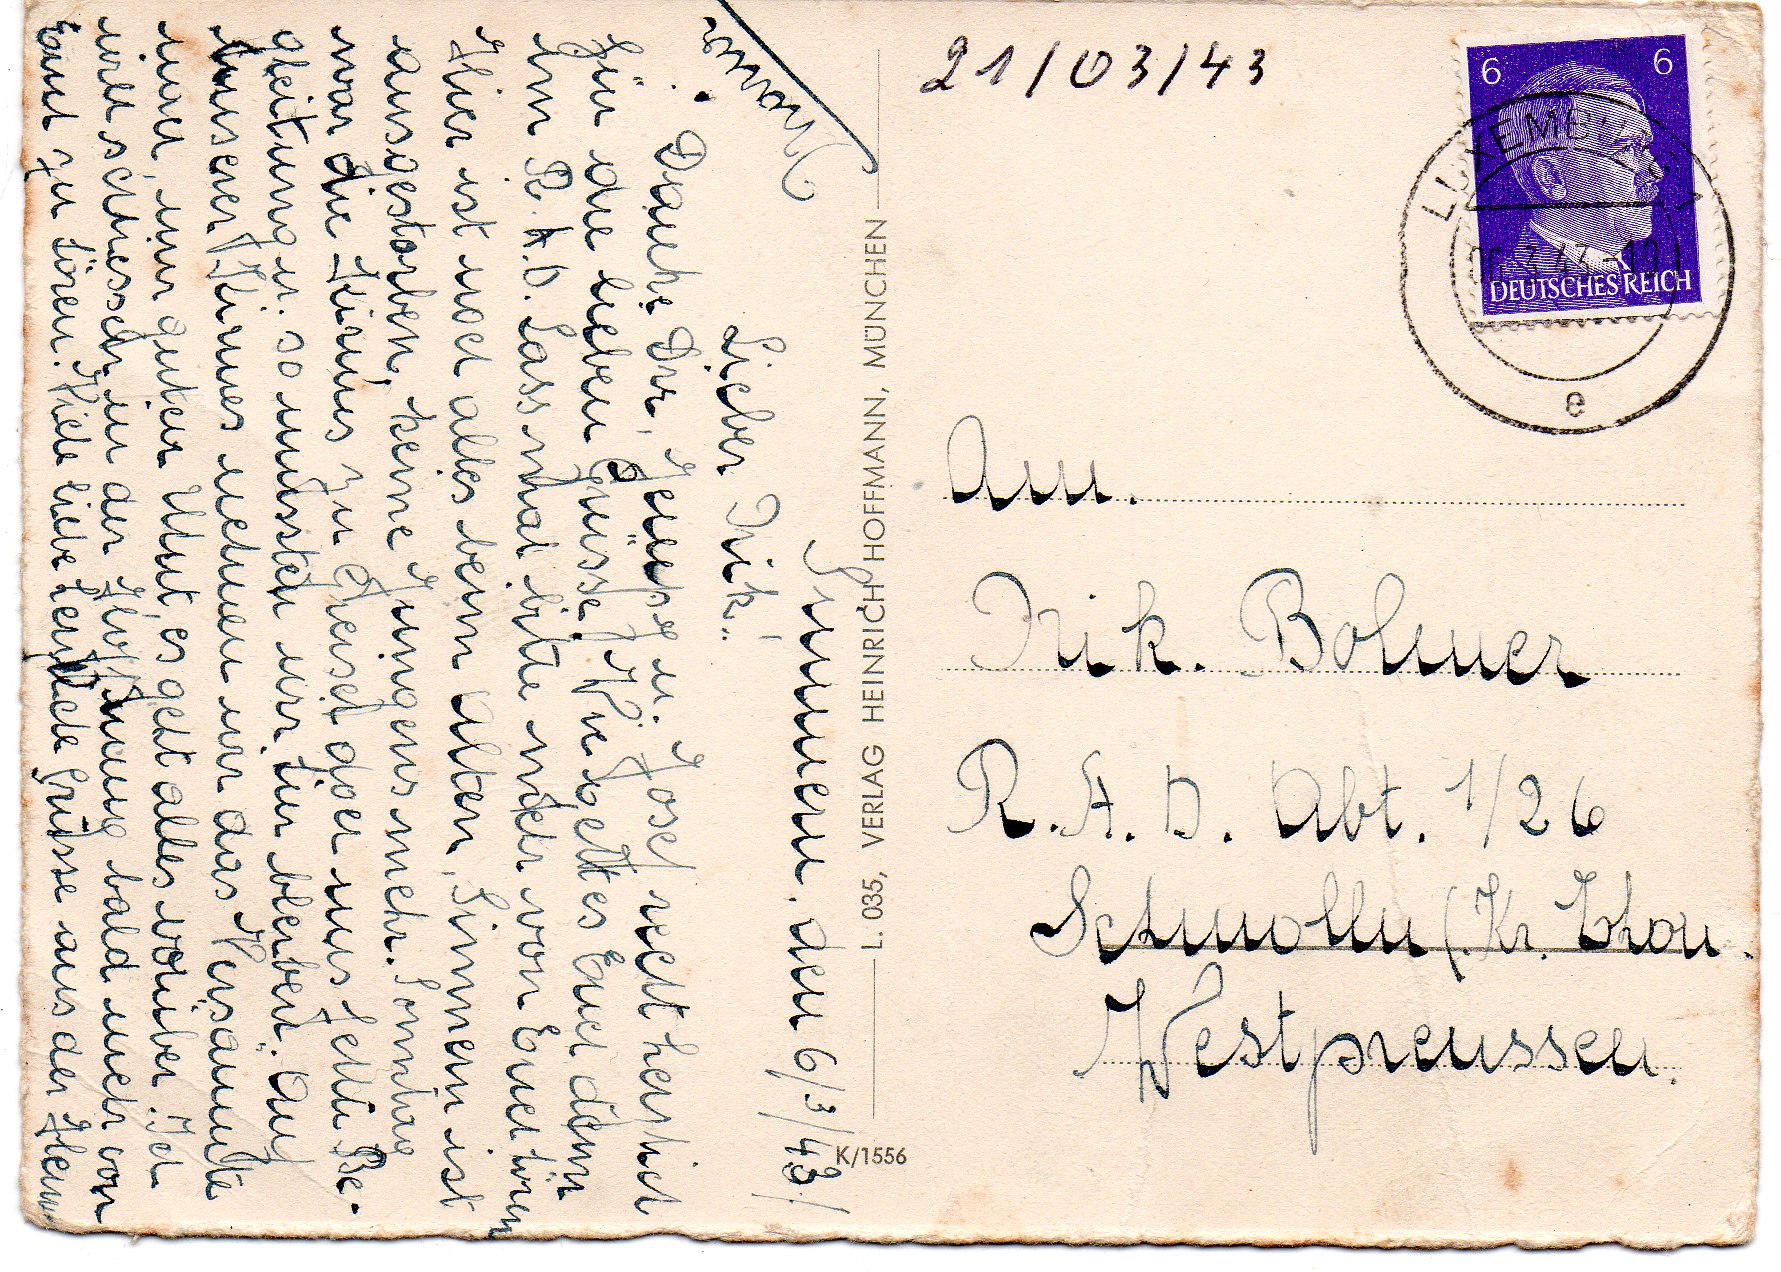 21/03/43
6 6
DEUTSCHES REICH
LUXEMBURG
6. 3. 43 - 12
e
An.
Nik. Bohmer
R. A. D. Abt. 1/26
Schmolln (Kr. Thorn.
Westpreussen.
L. 035, VERLAG HEINRICH HOFFMANN, MÜNCHEN
K/1556
Simmern. den 6/3/43/
Lieber Nik!
Danke Dir, u. Josef recht herzlich
für die lieben Grüsse. Wie geht es Euch dann
im R. A. D. Lass mal bitte mehr von Euch hören
Hier ist noch alles beim Alten, Simmern ist
ausgestorben, keine Jungens mehr. Sonntag
war die Kirmes zu aber uns fehlte Be-
gleitung u. so mussten wir fein bleiben. Auf
unserer Kirmes nehmen wir das Versäumte
nur guten Mut, es geht alles vorüber. Ich
will schliessen in der Hoffnung bald mehr von
Euch zu hören. Viele liebe herzliche Grüsse aus der Heim